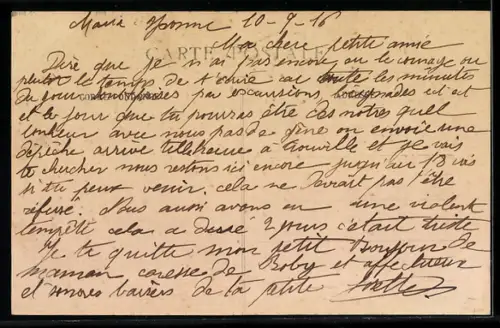 Maria Yvonne 10-9-16
CARTE POSTALE
Ma chere petite amie
Dire que je n'ai pas encore eu le courage ou
plutot le temps de t'ecrire car toute les minutes
du jour sont prises par excursions, baignades ect ect
CORRESPONDANCE
et le jour que tu pourras être des notres quell
bonheur avec nous pas de gêne on envoie une
dépêche arrive telle heure a Trouville et je vais
te chercher nous restons ici encore jusqu'au 18
si tu peux venir, cela ne devrait pas t'être
refusé. Nous aussi avons eu une violent
tempête cela a duré 2 jours c'etait triste
Je te quitte mon petit Bonjour de
maman caresse de Boby et affectueux
et baisers de ta petite